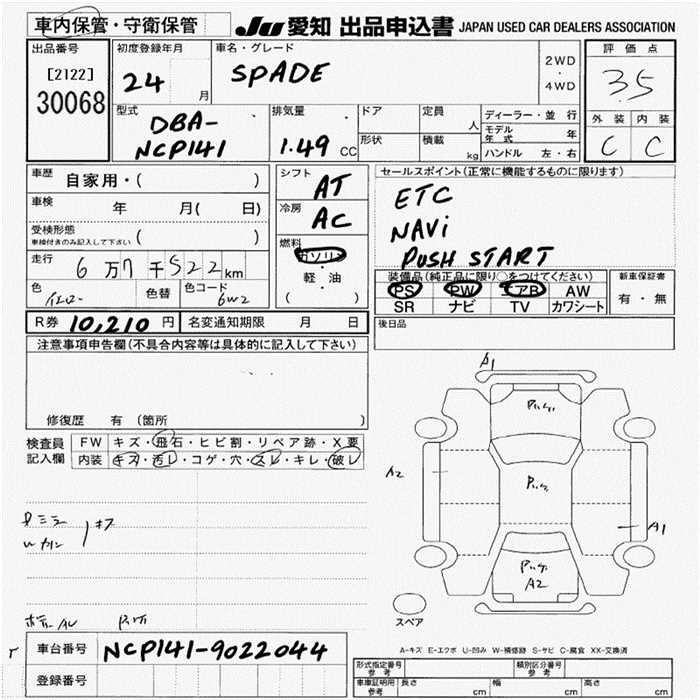 車内保管・守衛保管
JU 愛知 出品申込書 JAPAN USED CAR DEALERS ASSOCIATION
出品番号
[2122]
30068
初度登録年月
24
月
車名・グレード
SPADE
2WD
・
4WD
評価点
3.5
外装 内装
C C
型式
DBA-
NCP141
排気量
1.49 CC
ドア
形状
定員
人
積載
kg
ディーラー・並行
モデル年式 年
ハンドル 左・右
車歴 自家用・( )
車検 年 月( 日)
受検形態
車検付きのみ記入して下さい ( )
走行 6万7千522km
色 色替 色コード 6W2
シフト AT
冷房 AC
燃料
ガソリン
・
軽・油
( )
セールスポイント(正常に機能するものに限ります)
ETC
NAVi
PUSH START
装備品(純正品に限り○をつけてください)
PS PW エアB AW
SR ナビ TV カワシート
新車保証書
有・無
R券 10,210 円 名変通知期限 月 日
後日品
注意事項申告欄(不具合内容等は具体的に記入して下さい)
修復歴 有 (箇所 )
検査員記入欄
FW キズ・飛石・ヒビ割・リペア跡・X要
内装 キズ・汚レ・コゲ・穴・スレ・キレ・破レ
A1
A2
A1
A2
スペア
A-キズ E-エクボ U-凹み W-補修跡 S-サビ C-腐食 XX-交換済
車台番号 NCP141-9022044
登録番号
形式指定番号
参考
類別区分番号
車庫証明用
参考
長さ cm 幅 cm 高さ cm